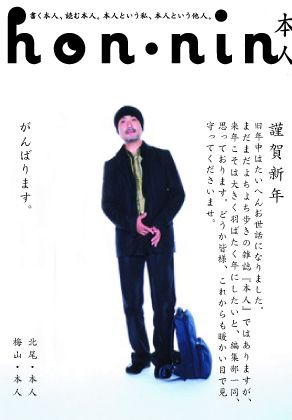 書く本人、読む本人。本人という私、本人という他人。
hon·nin
本人
謹賀新年
旧年中はたいへんお世話になりました。
まだまだよちよち歩きの雑誌『本人』ではありますが、
来年こそは大きく羽ばたく年にしたいと、編集部一同、
思っております。どうか皆様、これからも暖かい目で見
守ってくださいませ。
がんばります。
北尾・本人
梅山・本人